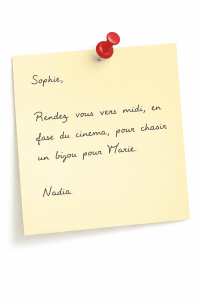 Sophie,
Rendez vous vers midi, en
fase du cinema, pour chasir
un bijou pour Marie.
Nadia